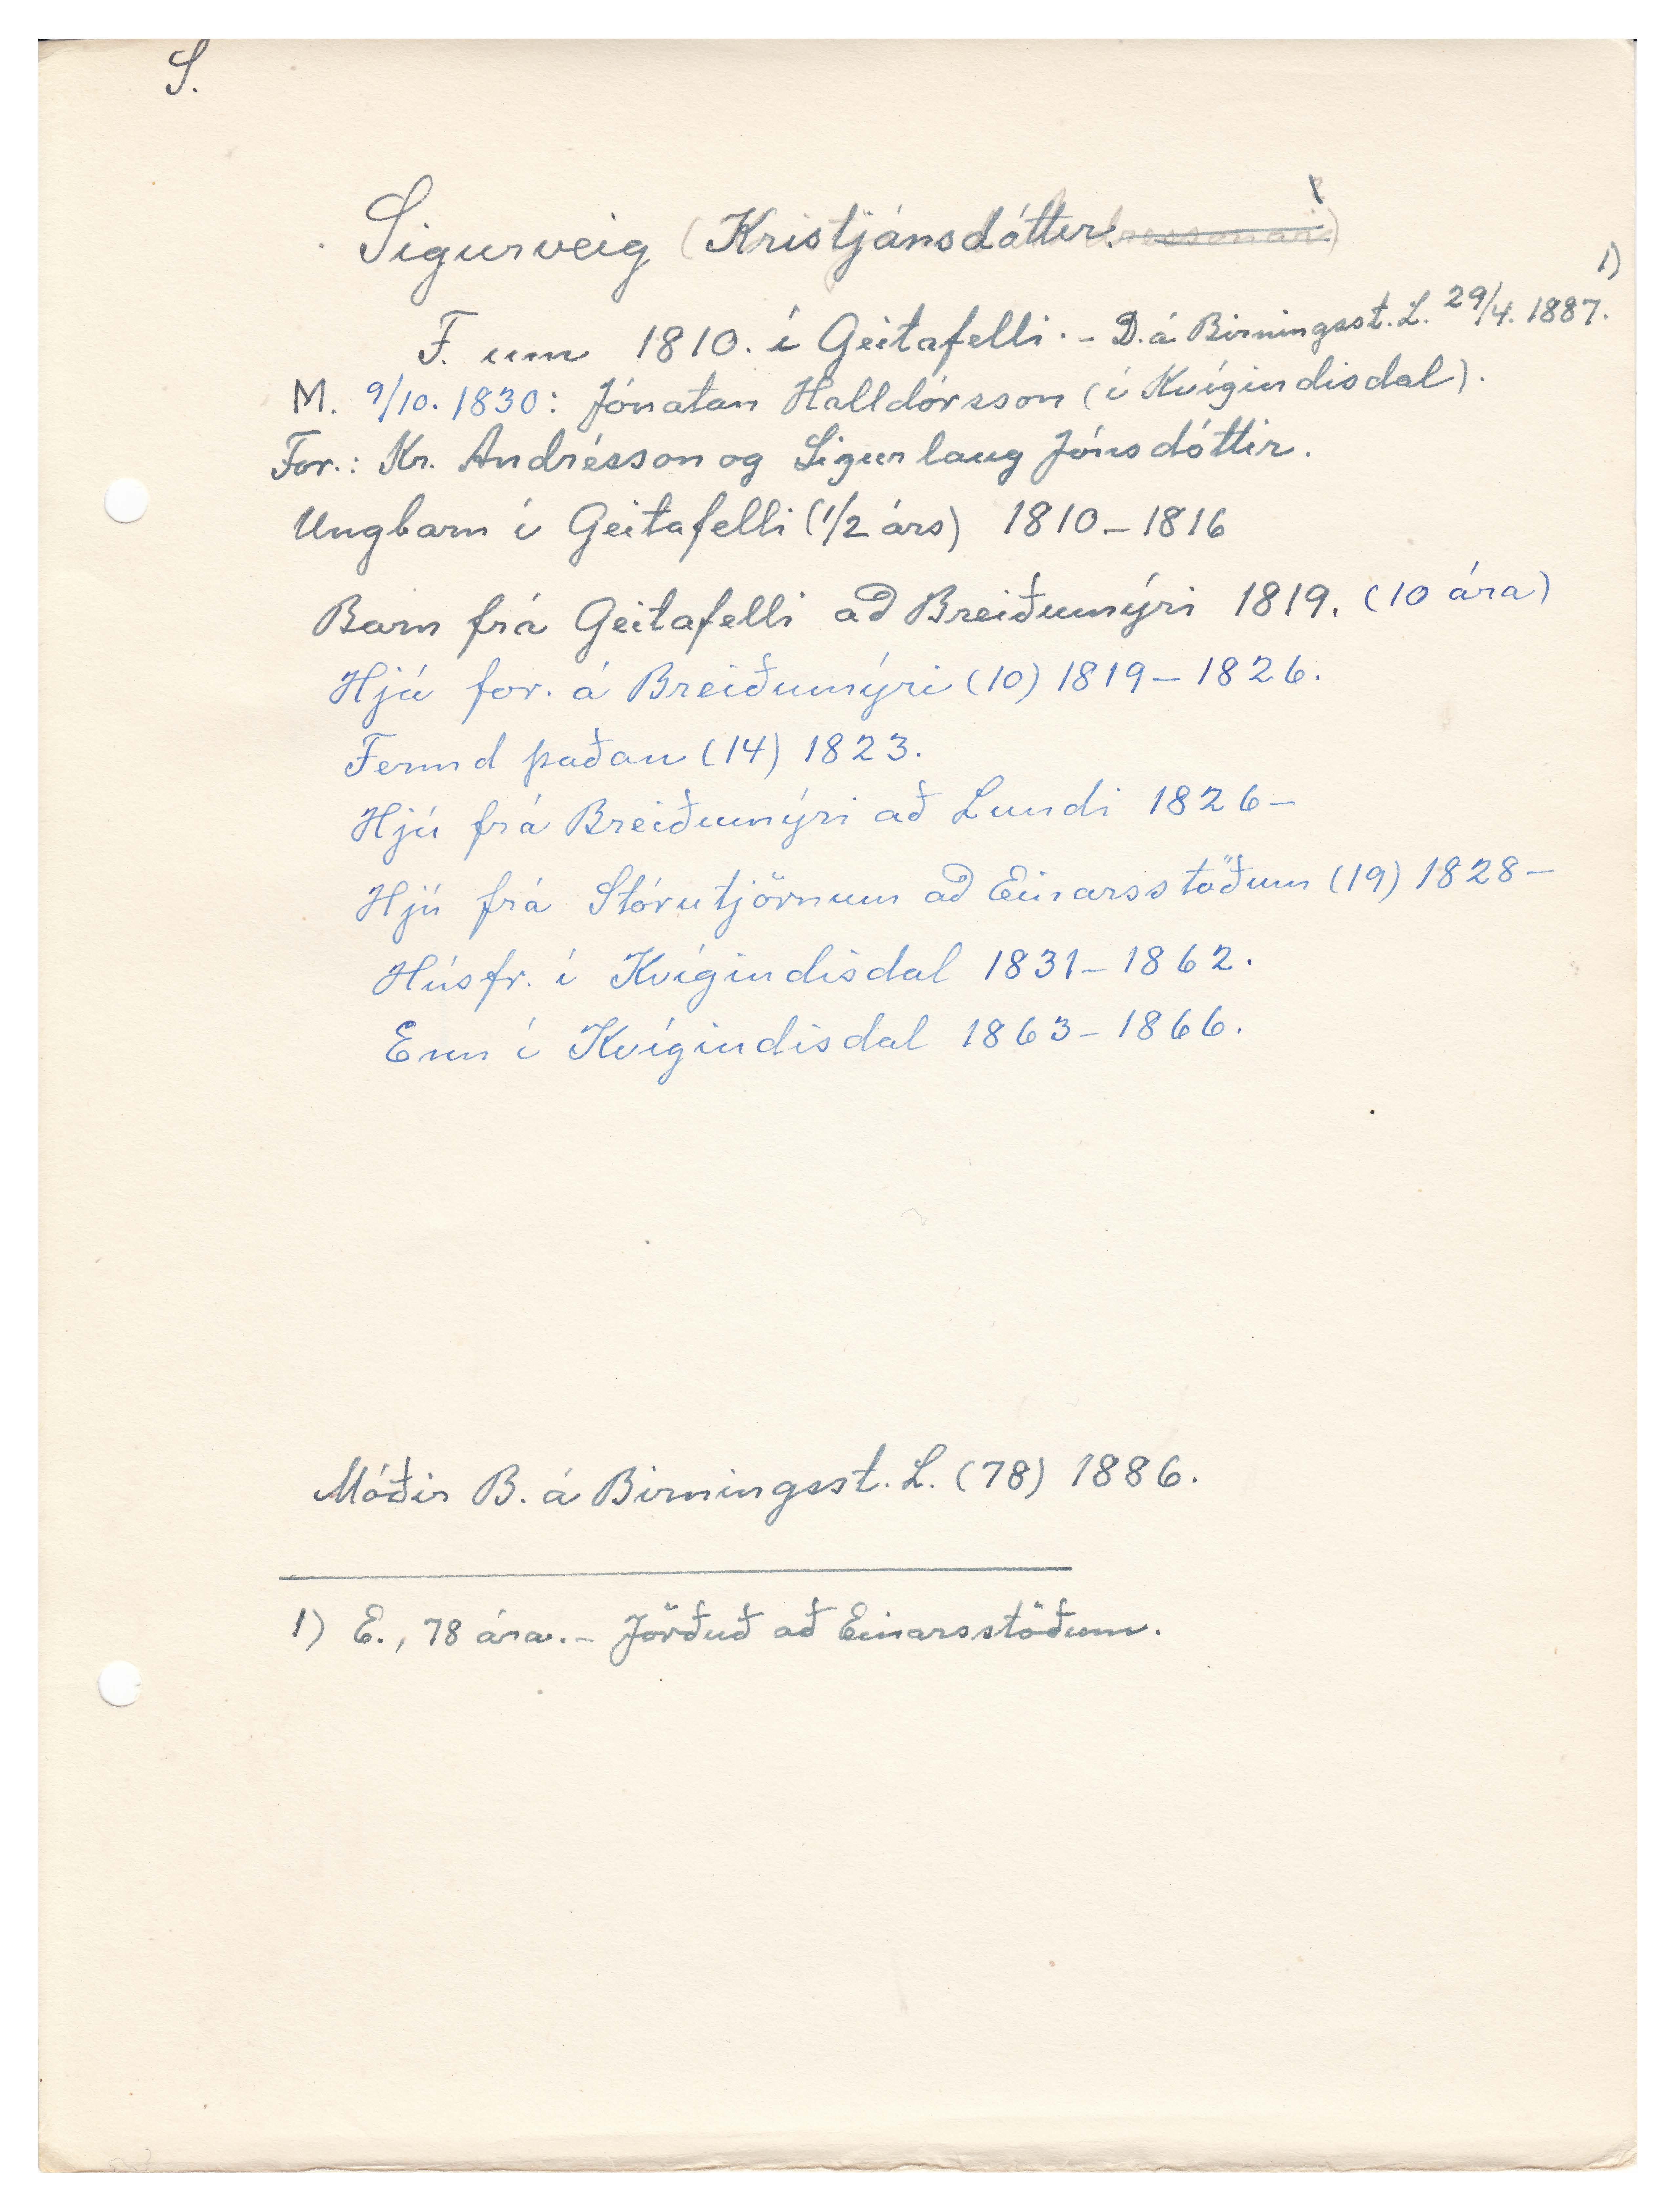 S.
Sigurveig (Kristjánsdóttir.
F. um 1810. í Geitafelli. - D. á Birningsst. L. 29/4. 1887. 1)
M. 9/10. 1830: Jónatan Halldórsson (í Kvígindisdal).
For.: Kr. Andrésson og Sigurlaug Jónsdóttir.
Ungbarn í Geitafelli (1/2 árs) 1810-1816
Barn frá Geitafelli að Breiðumýri 1819. (10 ára)
Hjá for. á Breiðumýri (10) 1819-1826.
Fermd þaðan (14) 1823.
Hjú frá Breiðumýri að Lundi 1826-
Hjú frá Stórutjörnum að Einarsstöðum (19) 1828-
Húsfr. í Kvígindisdal 1831-1862.
Enn í Kvígindisdal 1863-1866.
Móðir B. á Birningsst. L. (78) 1886.
1) E., 78 ára. - Jörðuð að Einarsstöðum.